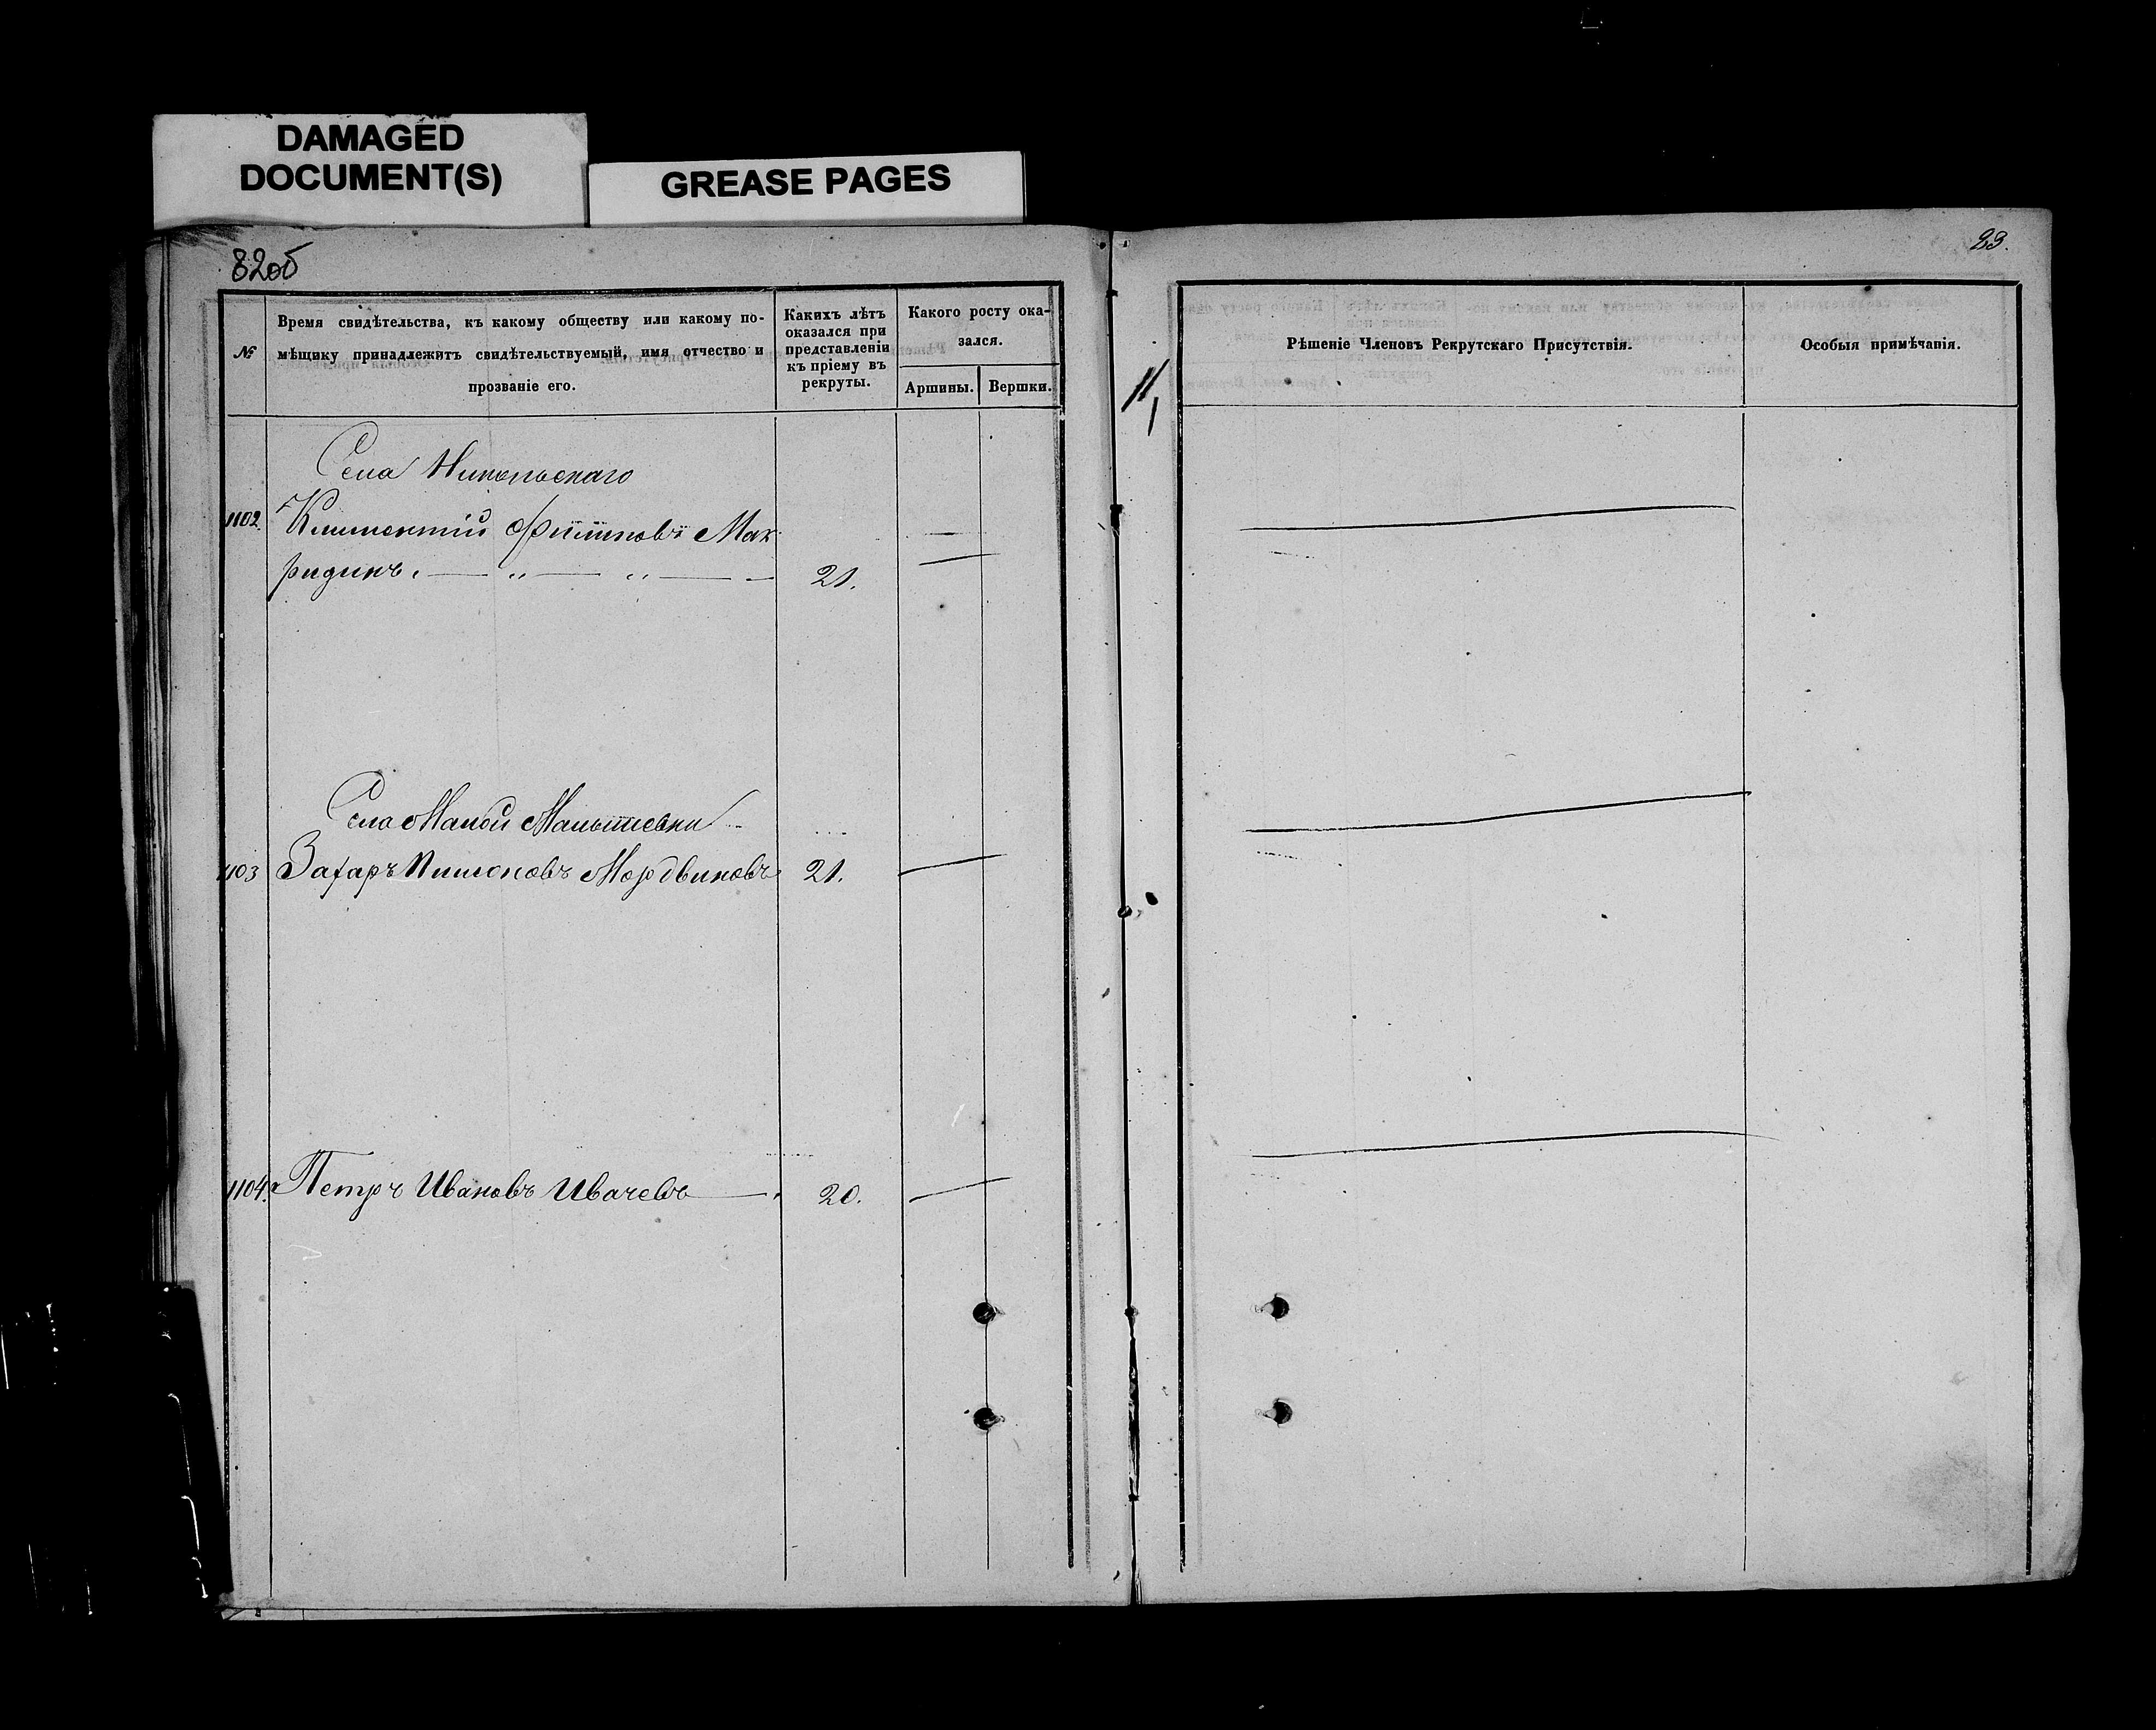 DAMAGED
DOCUMENT(S)
GREASE PAGES
82об
№
Время свидѣтельства, къ какому обществу или какому по-
мѣщику принадлежитъ свидѣтельствуемый, имя отчество и
прозваніе его.
Какихъ лѣтъ
оказался при
представленіи
къ пріему въ
рекруты.
Какого росту ока-
зался.
Аршины.
Вершки.
Села Никольскаго
1102. Климентій Мак-
ридинъ. — „ — „ — 21.
Села Малой Малышевки
1103 Захаръ Мордвиновъ 21.
1104. Петръ Ивановъ Ивачевъ — 20.
23.
Рѣшеніе Членовъ Рекрутскаго Присутствія.
Особыя примѣчанія.